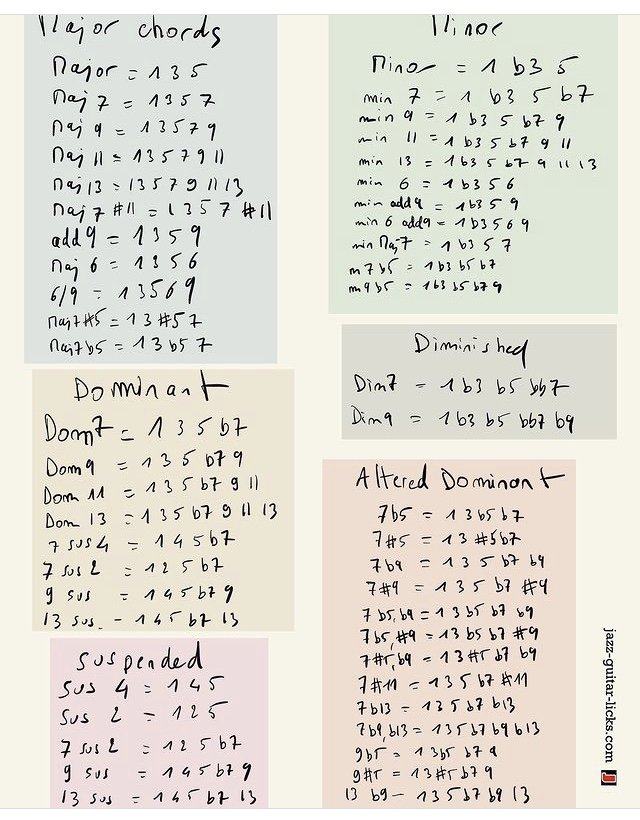 Major chords
Major = 1 3 5
Maj 7 = 1 3 5 7
Maj 9 = 1 3 5 7 9
Maj 11 = 1 3 5 7 9 11
Maj 13 = 1 3 5 7 9 11 13
Maj 7 #11 = 1 3 5 7 #11
add 9 = 1 3 5 9
Maj 6 = 1 3 5 6
6/9 = 1 3 5 6 9
Maj7#5 = 1 3 #5 7
Maj7b5 = 1 3 b5 7
Dominant
Dom7 = 1 3 5 b7
Dom9 = 1 3 5 b7 9
Dom 11 = 1 3 5 b7 9 11
Dom 13 = 1 3 5 b7 9 11 13
7 sus 4 = 1 4 5 b7
7 sus 2 = 1 2 5 b7
9 sus = 1 4 5 b7 9
13 sus - 1 4 5 b7 13
suspended
sus 4 = 1 4 5
sus 2 = 1 2 5
7 sus 2 = 1 2 5 b7
9 sus = 1 4 5 b7 9
13 sus = 1 4 5 b7 13
Minor
Minor = 1 b3 5
min 7 = 1 b3 5 b7
min 9 = 1 b3 5 b7 9
min 11 = 1 b3 5 b7 9 11
min 13 = 1 b3 5 b7 9 11 13
min 6 = 1 b3 5 6
min add9 = 1 b3 5 9
min 6 add9 = 1 b3 5 6 9
min Maj7 = 1 b3 5 7
m7b5 = 1 b3 b5 b7
m9b5 = 1 b3 b5 b7 9
Diminished
Dim7 = 1 b3 b5 bb7
Dim9 = 1 b3 b5 bb7 b9
Altered Dominant
7b5 = 1 3 b5 b7
7#5 = 1 3 #5 b7
7b9 = 1 3 5 b7 b9
7#9 = 1 3 5 b7 #9
7 b5,b9 = 1 3 b5 b7 b9
7b5,#9 = 1 3 b5 b7 #9
7#5,b9 = 1 3 #5 b7 b9
7#11 = 1 3 5 b7 #11
7b13 = 1 3 5 b7 b13
7b9,b13 = 1 3 5 b7 b9 b13
9b5 = 1 3 b5 b7 9
9#5 = 1 3 #5 b7 9
13 b9 - 1 3 5 b7 b9 13
jazz-guitar-licks.com